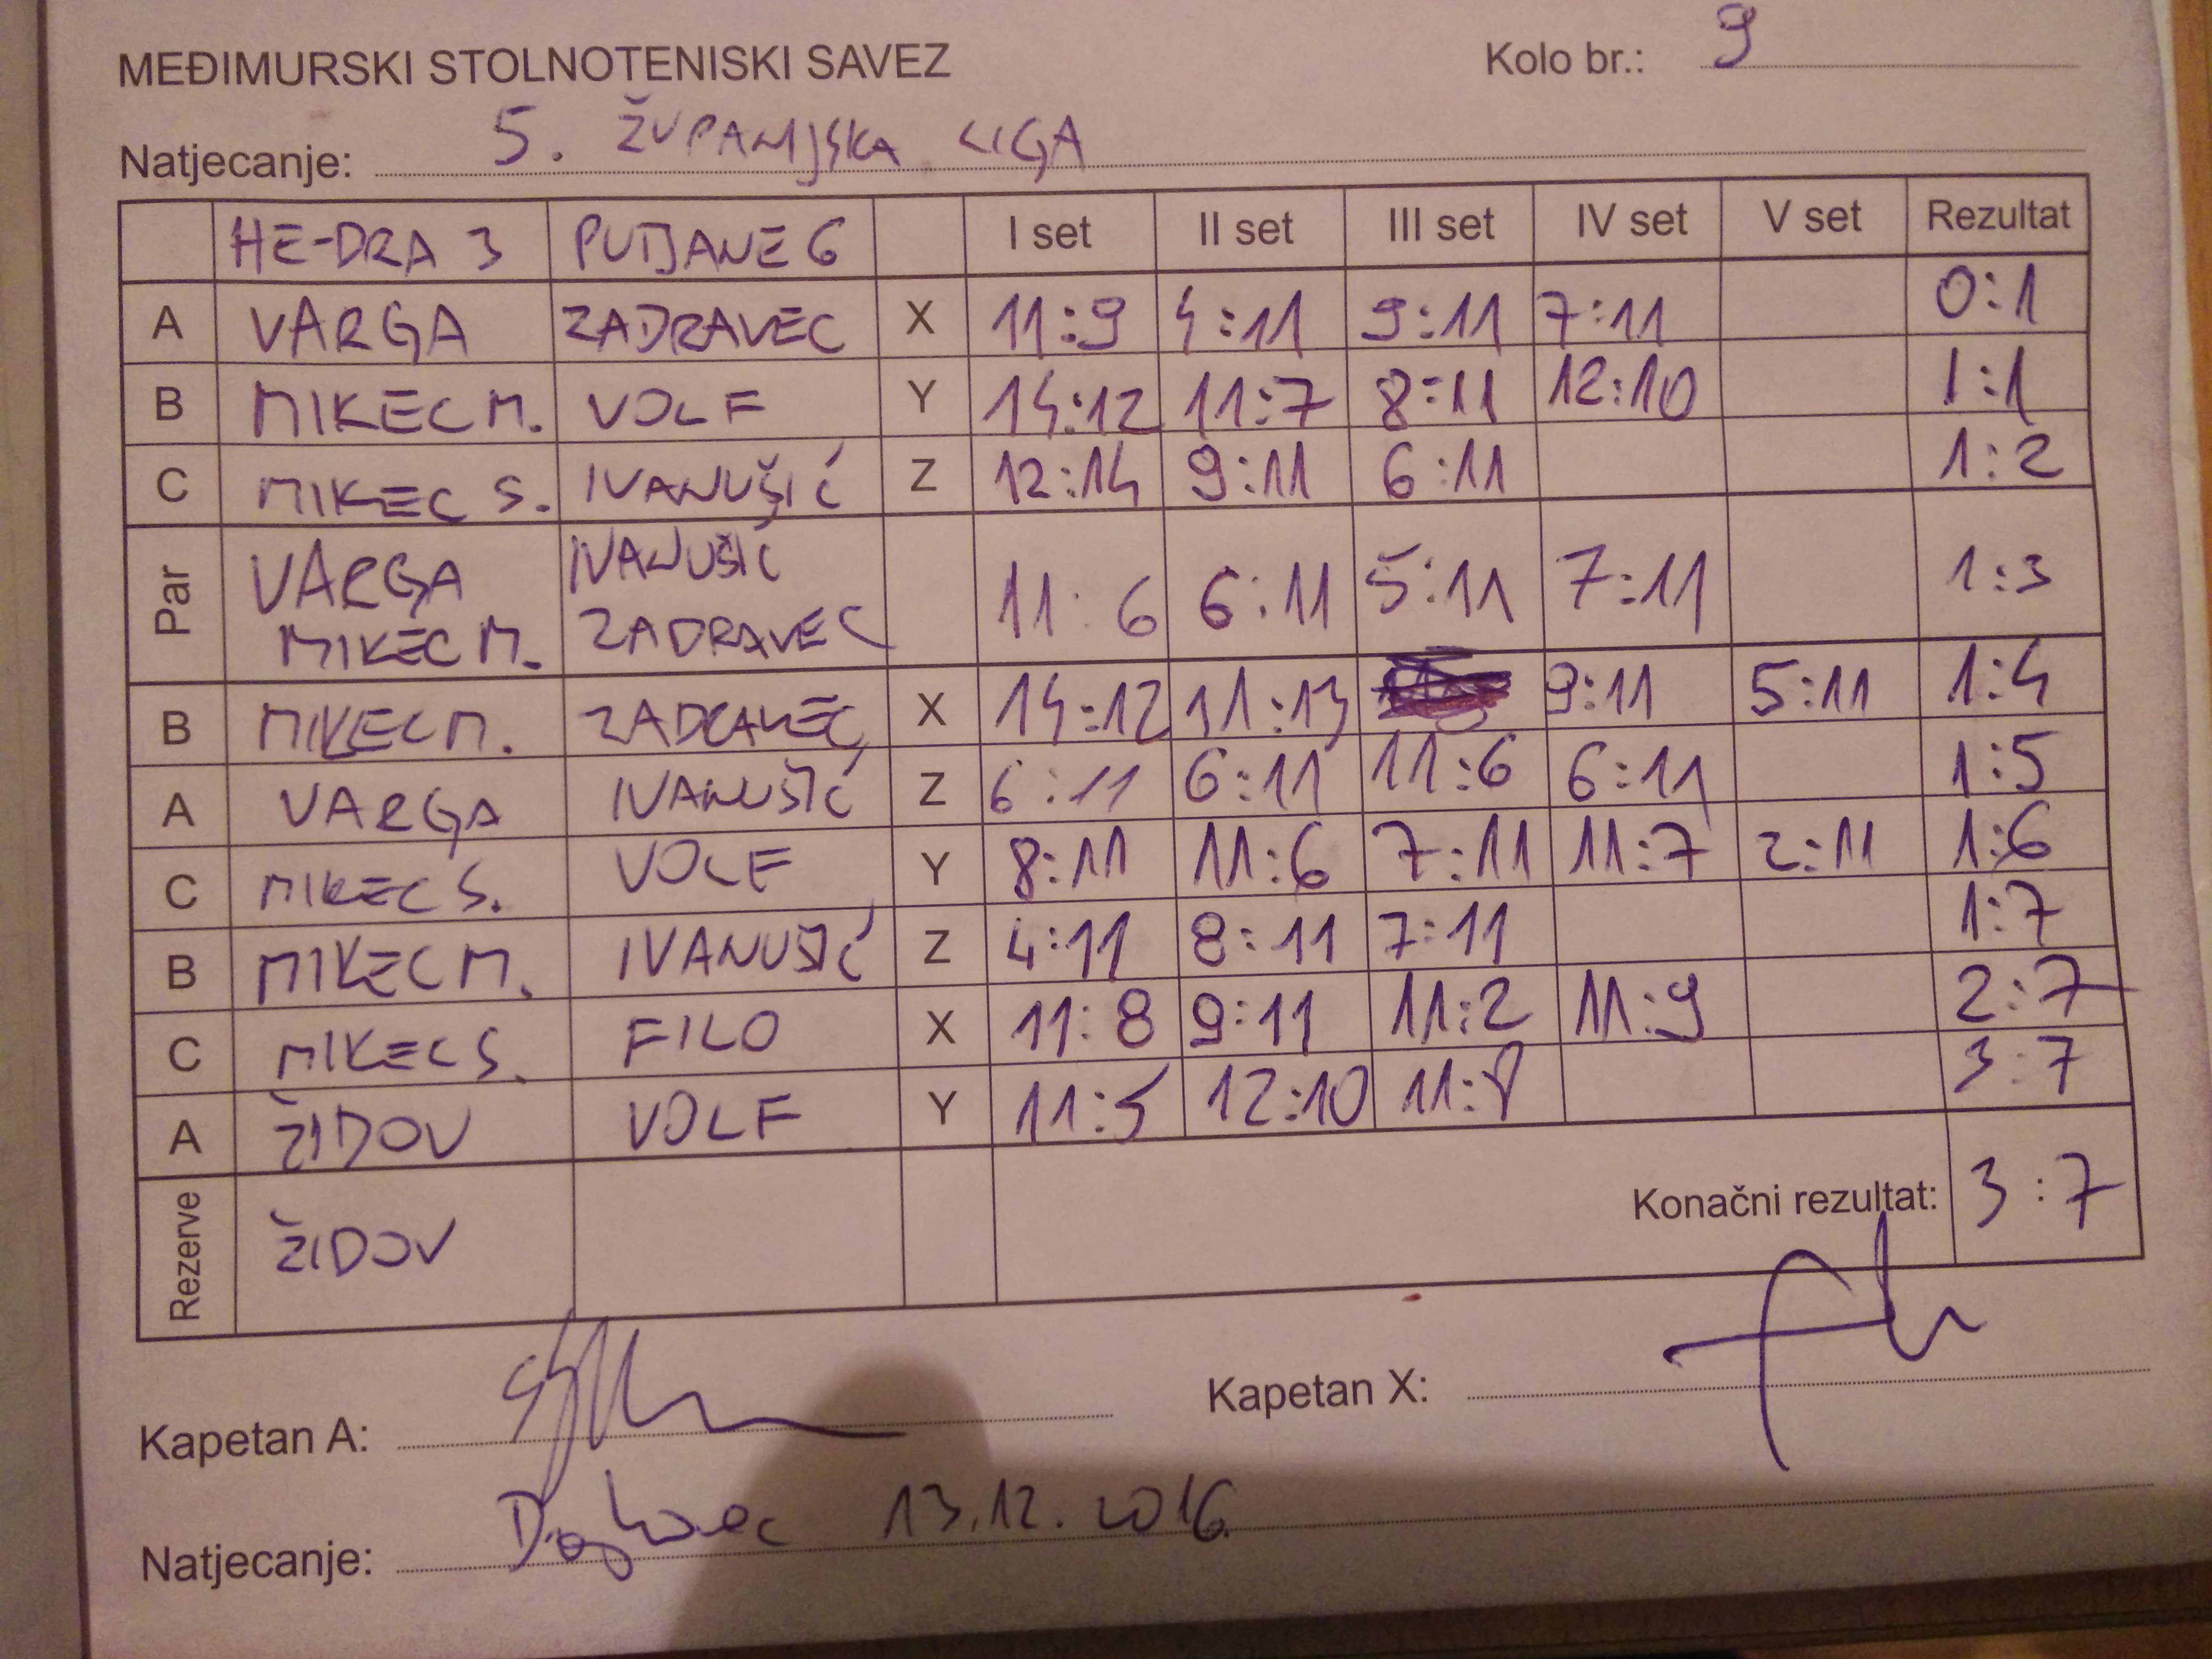 MEĐIMURSKI STOLNOTENISKI SAVEZ Kolo br.: 9
Natjecanje: 5. ŽUPANIJSKA LIGA
HE-DRA 3 PUTJANE 6 I set II set III set IV set V set Rezultat
A VARGA ZADRAVEC X 11:9 4:11 9:11 7:11 0:1
B MIKEC M. VOLF Y 14:12 11:7 8:11 12:10 1:1
C MIKEC S. IVANUŠIĆ Z 12:14 9:11 6:11 1:2
Par VARGA MIKEC M. IVANUŠIĆ ZADRAVEC 11:6 6:11 5:11 7:11 1:3
B MIKEC M. ZADRAVEC X 14:12 11:13 9:11 5:11 1:4
A VARGA IVANUŠIĆ Z 6:11 6:11 11:6 6:11 1:5
C MIKEC S. VOLF Y 8:11 11:6 7:11 11:7 2:11 1:6
B MIKEC M. IVANUŠIĆ Z 4:11 8:11 7:11 1:7
C MIKEC S. FILO X 11:8 9:11 11:2 11:9 2:7
A ŽIDOV VOLF Y 11:5 12:10 11:8 3:7
Rezerve ŽIDOV Konačni rezultat: 3:7
Kapetan A: Kapetan X:
Natjecanje: 13.12.2016.